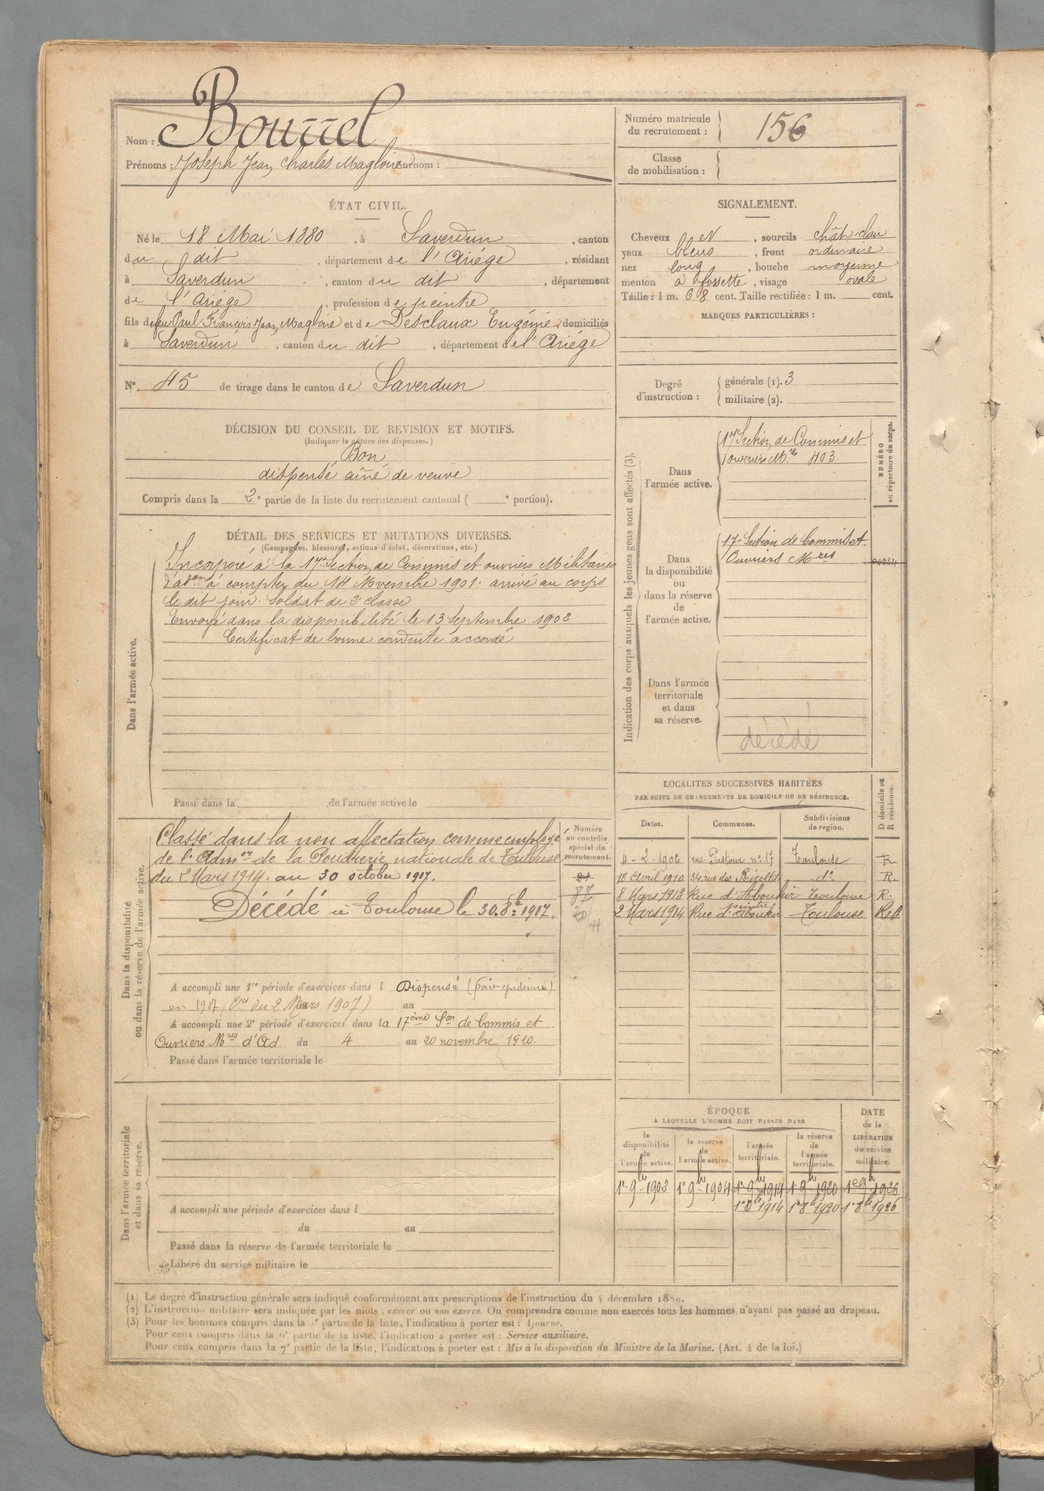 Nom : Bourrel
Prénoms : Joseph Jean Charles Magloire Surnom :
Numéro matricule du recrutement : 156
Classe de mobilisation :
ÉTAT CIVIL.
Né le 18 Mai 1880, à Saverdun, canton
du dit, département de l'Ariége, résidant
à Saverdun, canton du dit, département
de l'Ariége, profession de peintre
fils de feu Paul François Jean Magloire et de Desclaux Eugénie, domiciliés
à Saverdun, canton du dit, département de l'Ariége
N° 45 de tirage dans le canton de Saverdun
SIGNALEMENT.
Cheveux et, sourcils chât clair
yeux bleus, front ordinaire
nez long, bouche moyenne
menton à fossette, visage ovale
Taille : 1 m. 68 cent. Taille rectifiée : 1 m. cent.
MARQUES PARTICULIÈRES :
Degré d'instruction : générale (1). 3
militaire (2).
DÉCISION DU CONSEIL DE REVISION ET MOTIFS.
(Indiquer la nature des dispenses.)
Bon
dispensé aîné de veuve
Compris dans la 2e partie de la liste du recrutement cantonal ( e portion).
DÉTAIL DES SERVICES ET MUTATIONS DIVERSES.
(Campagnes, blessures, actions d'éclat, décorations, etc.)
Dans l'armée active.
Incorporé à la 17e Section de Commis et ouvriers Militaires
d'adon à compter du 14 Novembre 1901. arrivé au corps
le dit jour. Soldat de 2e classe
Envoyé dans la disponibilité le 13 Septembre 1902
Certificat de bonne conduite accordé
Passé dans la , de l'armée active le
Indication des corps auxquels les jeunes gens sont affectés (3).
NUMÉRO au répertoire du corps.
Dans l'armée active.
17e Section de Commis et
ouvriers Mres 403.
Dans la disponibilité ou dans la réserve de l'armée active.
17e Section de Commis et
Ouvriers Mres
Dans l'armée territoriale et dans sa réserve.
décédé
Dans la disponibilité ou dans la réserve de l'armée active.
Numéro au contrôle spécial du recrutement.
Classé dans la non affectation comme employé
de l'Admon de la Poudrerie nationale de Toulouse
du 2 Mars 1914. au 30 octobre 1917.
Décédé à Toulouse le 30. 8bre 1917.
A accompli une 1re période d'exercices dans l Dispensé
en 1907 (Cre du 2 Mars 1907) au
A accompli une 2e période d'exercices dans la 17ème Son de Commis et
Ouvriers Mres d'Ad du 4 au 20 novembre 1910.
Passé dans l'armée territoriale le
LOCALITÉS SUCCESSIVES HABITÉES
PAR SUITE DE CHANGEMENTS DE DOMICILE OU DE RÉSIDENCE.
Dates. Communes. Subdivisions de région. D domicile ou R résidence.
rue Pasteur n° 17 Toulouse R
18 Avril 1910 do R.
8 Mars 1913 Rue d'Aboukir Toulouse R.
2 Mars 1914 Rue d'Aboukir Toulouse
Dans l'armée territoriale et dans sa réserve.
A accompli une période d'exercices dans l
du au
Passé dans la réserve de l'armée territoriale le
Libéré du service militaire le
ÉPOQUE
À LAQUELLE L'HOMME DOIT PASSER DANS
la disponibilité de l'armée active. la réserve de l'armée active. l'armée territoriale. la réserve de l'armée territoriale. DATE de la LIBÉRATION du service militaire.
1er 9bre 1902 1er 9bre 1904 1er 9bre 1914 1er 9bre 1920 1er 9bre 1926
1er 8bre 1914 1er 8bre 1920 1er 8bre 1926
(1) Le degré d'instruction générale sera indiqué conformément aux prescriptions de l'instruction du 4 décembre 1889.
(2) L'instruction militaire sera indiquée par les mots : exercé ou non exercé. On comprendra comme non exercés tous les hommes n'ayant pas passé au drapeau.
(3) Pour les hommes compris dans la 5e partie de la liste, l'indication à porter est : Ajourné.
Pour ceux compris dans la 6e partie de la liste, l'indication à porter est : Service auxiliaire.
Pour ceux compris dans la 7e partie de la liste, l'indication à porter est : Mis à la disposition du Ministre de la Marine. (Art. 4 de la loi.)